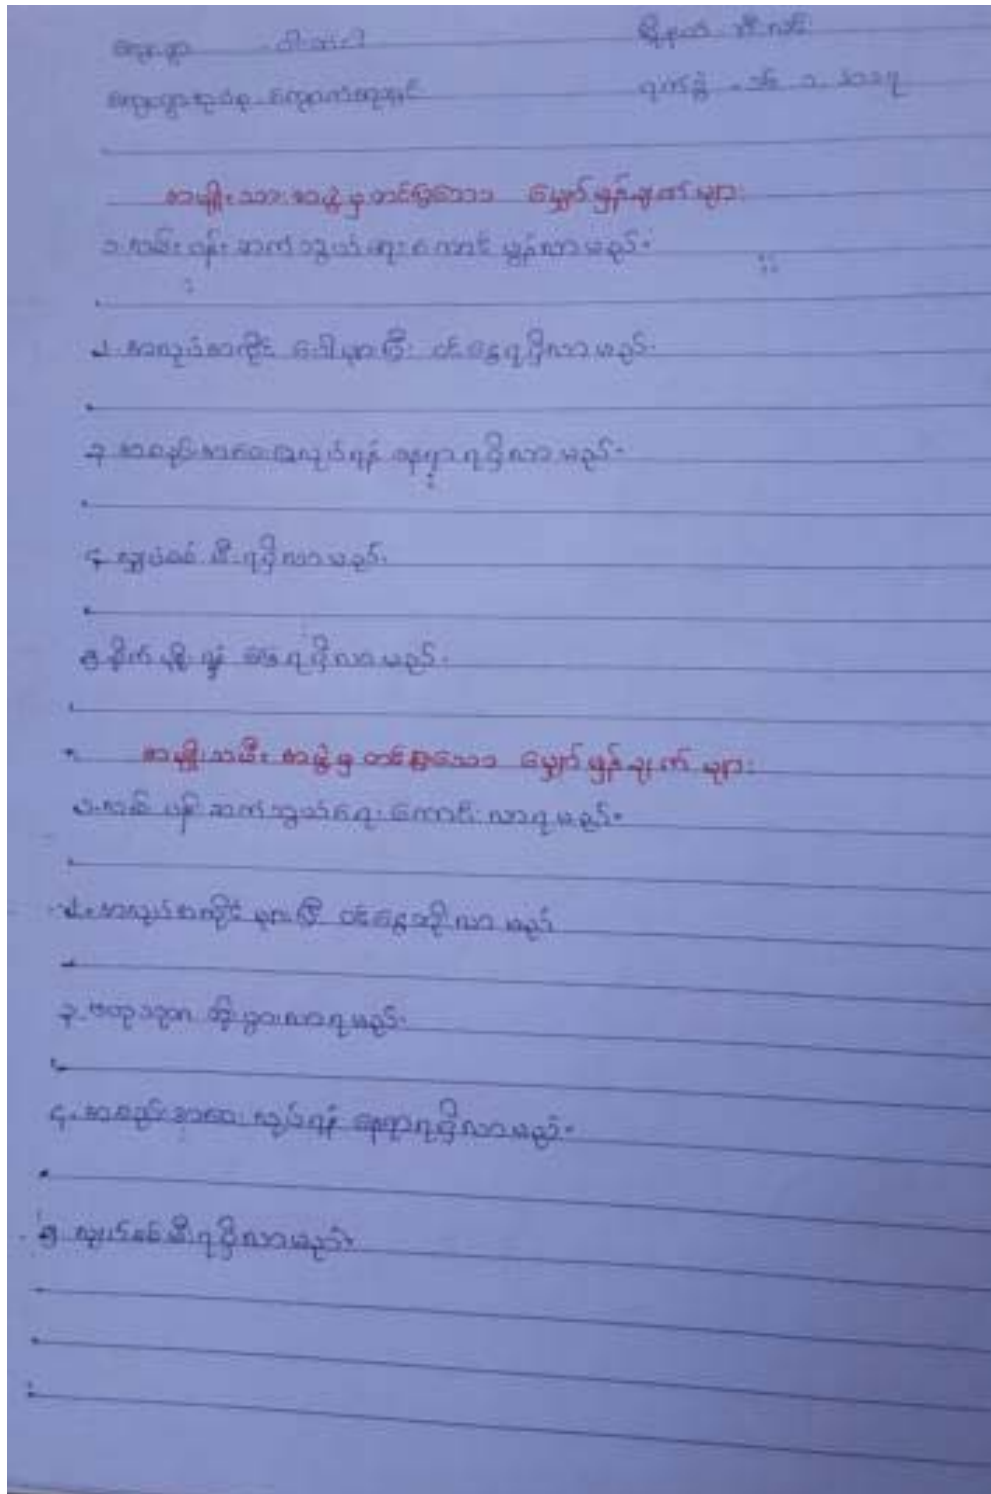 ကျေးရွာ
ကျေးရွာအုပ်စု ကျောက်
ရက်စွဲ
အမျိုးသားအဖွဲ့မှတင်ပြသော မျှော်မှန်းချက်များ
၁. လမ်းပန်းဆက်သွယ်ရေးကောင်းမွန်လာမည်။
၂. အလုပ်အကိုင် ပေါများပြီး ဝင်ငွေရရှိလာမည်။
၃. အစည်းအဝေးပြုလုပ်ရန် နေရာရရှိလာမည်။
၄. လျှပ်စစ် မီးရရှိလာမည်။
၅. စိုက်ပျိုးရန် ရေရရှိလာမည်။
အမျိုးသမီး အဖွဲ့မှ တင်ပြသော မျှော်မှန်းချက် များ
၁. လမ်းပန်းဆက်သွယ်ရေး ကောင်းလာရမည်။
၂. အလုပ်အကိုင် များပြီး ဝင်ငွေတိုးလာမည်
၃. ဗဟုသုတ တိုးပွားလာရမည်။
၄. အစည်းအဝေး လုပ်ရန် နေရာရရှိလာမည်။
၅. လျှပ်စစ်မီးရရှိလာမည်။